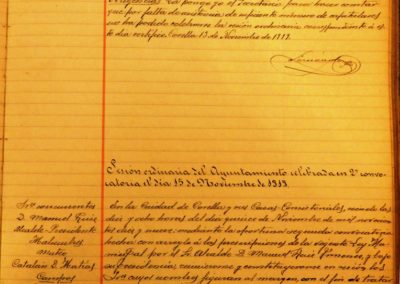 Diligencia: La pongo yo el Secretario para hacer constar
que por falta de asistencia de suficiente número de capitulares
no ha podido celebrarse la sesión ordinaria correspondiente á es-
te día certifico. Corella 13 de Noviembre de 1919.
Sesión ordinaria del Ayuntamiento celebrada en 2ª convo-
catoria el día 15 de Noviembre de 1919.
Sres concurrentes
D. Manuel Ruiz
Alcalde Presidente
Catalán D. Matías
En la Ciudad de Corella y sus Casas Consistoriales, siendo las
diez y ocho horas del día quince de Noviembre de mil novecien-
tos diez y nueve; mediante la oportuna segunda convocatoria
hecha con arreglo á las prescripciones de la vigente Ley Mu-
nicipal por el Sr. Alcalde D. Manuel Ruiz y bajo
su presidencia, reuniéronse y constituyéronse en sesión los
Sres cuyos nombres figuran al margen, con el fin de tratar